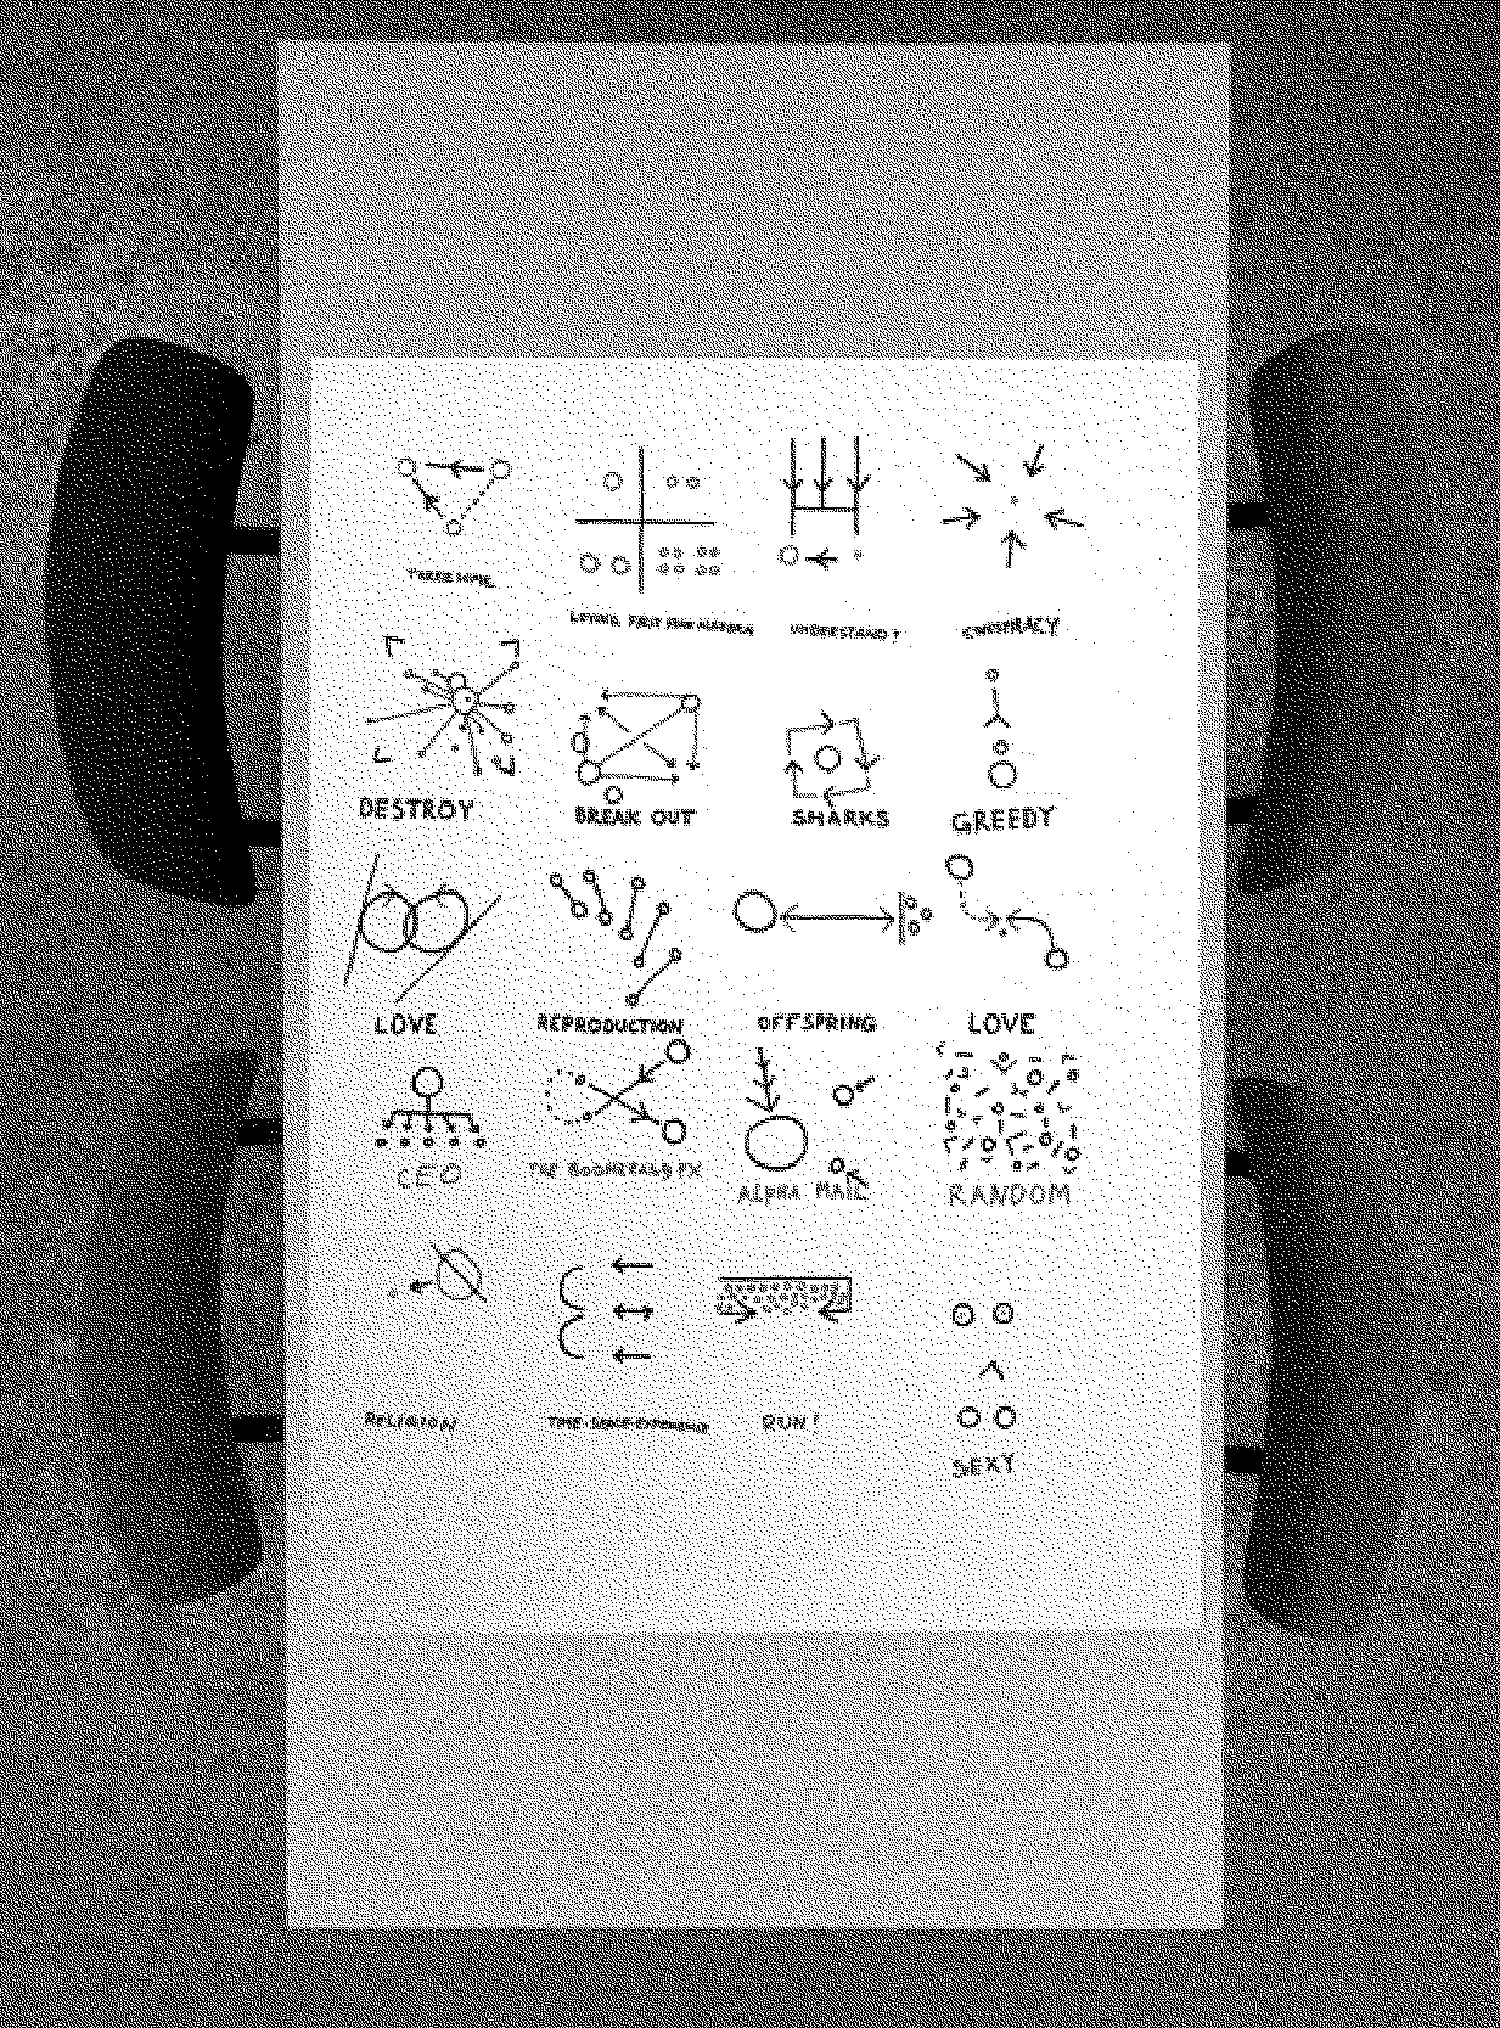 UNDERSTAND?
CONSPIRACY
DESTROY
BREAK OUT
SHARKS
GREEDY
LOVE
REPRODUCTION
OFFSPRING
LOVE
CEO
THE BOOMERANG FX
ALPHA MALE
RANDOM
RELIGION
THE
RUN!
SEXY